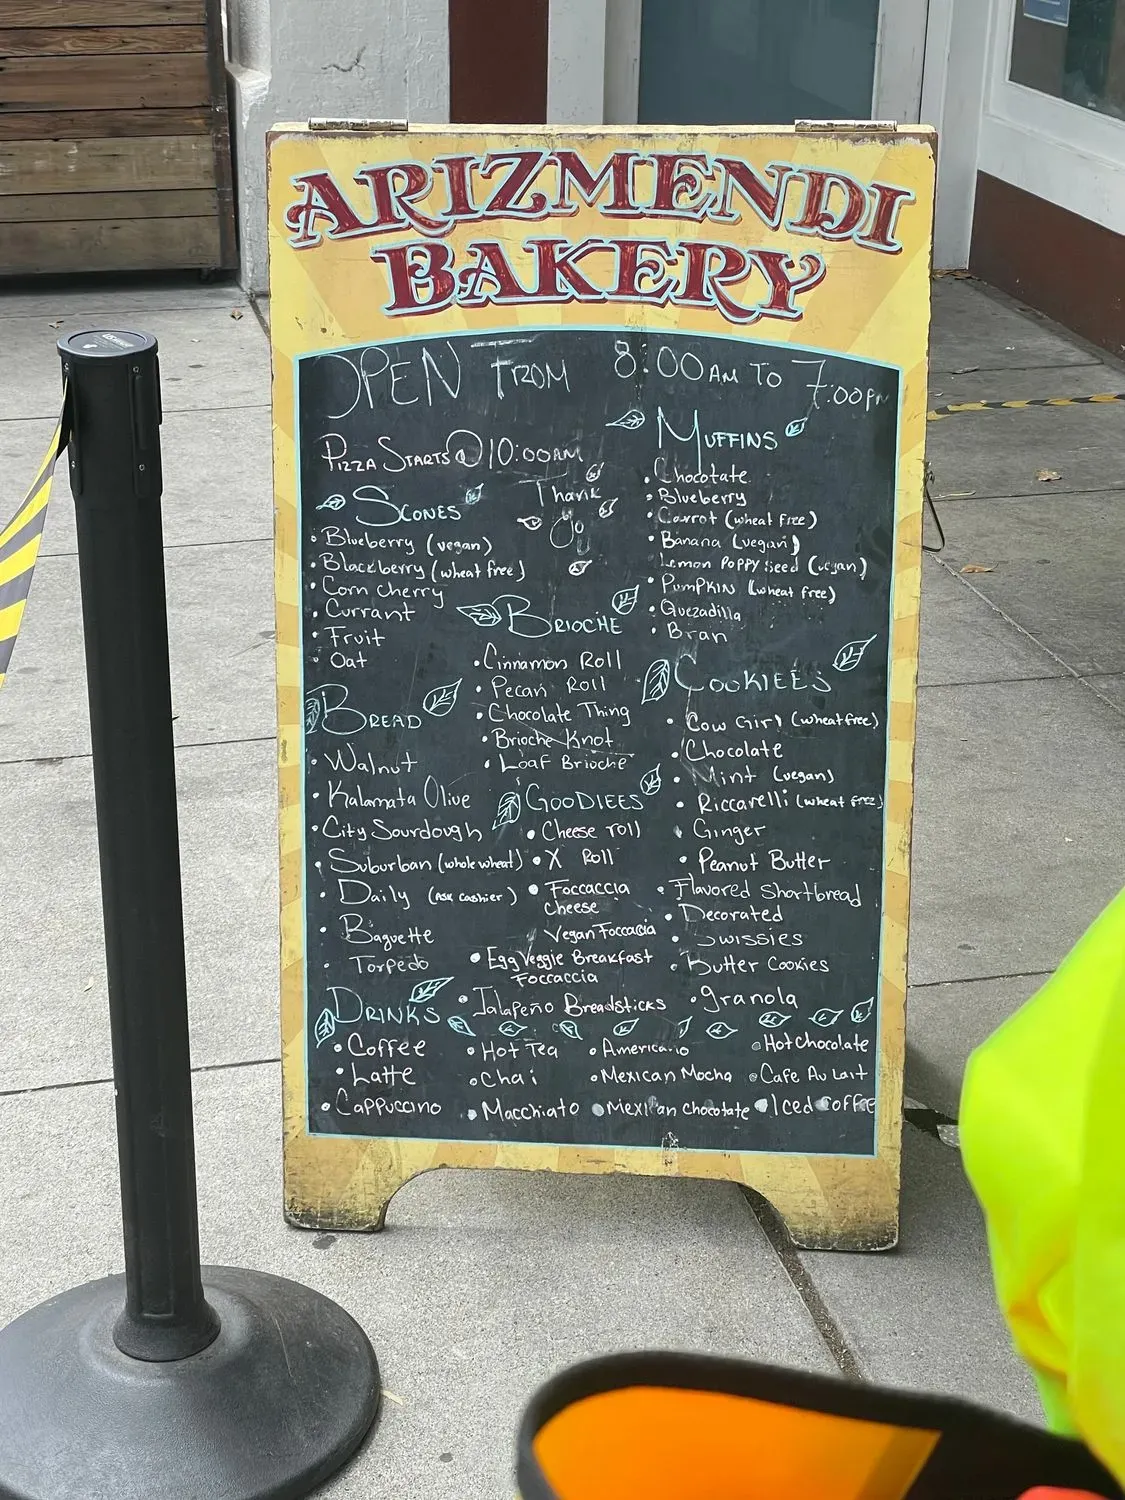 ARIZMENDI
BAKERY
OPEN FROM 8:00 AM TO 7:00PM
PIZZA STARTS @ 10:00AM
Thank
yo
SCONES
Blueberry (vegan)
Blackberry (wheat free)
Corn cherry
Currant
Fruit
Oat
BREAD
Walnut
Kalamata Olive
City Sourdough
Suburban (whole wheat)
Daily (Ask cashier)
Baguette
Torpedo
BRIOCHE
Cinnamon Roll
Pecan Roll
Chocolate Thing
Brioche Knot
Loaf Brioche
GOODIEES
Cheese roll
X Roll
Foccaccia
Cheese
Vegan Foccacia
Egg Veggie Breakfast
Foccaccia
Jalapeño Breadsticks
MUFFINS
Chocotate
Blueberry
Carrot (wheat free)
Banana (vegan)
Lemon Poppy Seed (vegan)
Pumpkin (wheat free)
Quezadilla
Bran
COOKIEES
Cow Girl (wheat free)
Chocolate
Mint (vegan)
Riccarelli (wheat free)
Ginger
Peanut Butter
Flavored Shortbread
Decorated
Swissies
Butter Cookies
granola
DRINKS
Coffee
Latte
Cappuccino
Hot Tea
Chai
Macchiato
Americano
Mexican Mocha
Mexican Chocolate
Hot Chocolate
Cafe Au Lait
Iced Coffee